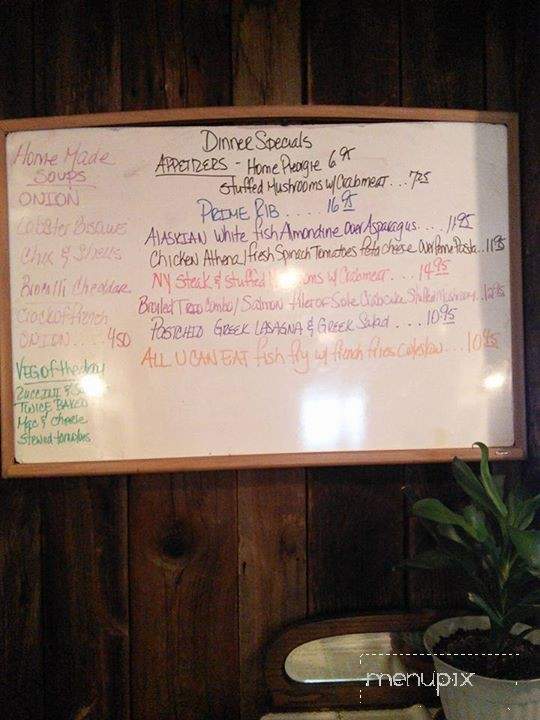 Dinner Specials
APPETIZERS - Home Pieorgie 6 95
Stuffed Mushrooms w/Crabmeat...7.25
PRIME RIB.....16 95
ALASKIAN White Fish Almondine Over Asparagus....11 95
Chicken Athena/Fresh Spinach Tomatoes Feta Cheese Over Penne Pasta..11 95
NY Steak & Stuffed w/Crabmeat....14 95
Broiled Trio Combo/Salmon Filet of Sole Stuffed Mushroom
PASTICHIO GREEK LASAGNA & GREEK Salad....10 95
ALL U CAN EAT Fish Fry w/ French Fries Coleslaw...10 95
Home Made
Soups
ONION
Lobster Bisques
Chix & Shells
Broccilli Cheddar
Crock of French
ONION.....4 50
VEG of the day
Zuccini &
TWICE BAKED
Mac & Cheese
Stewed tomatoes
menupix